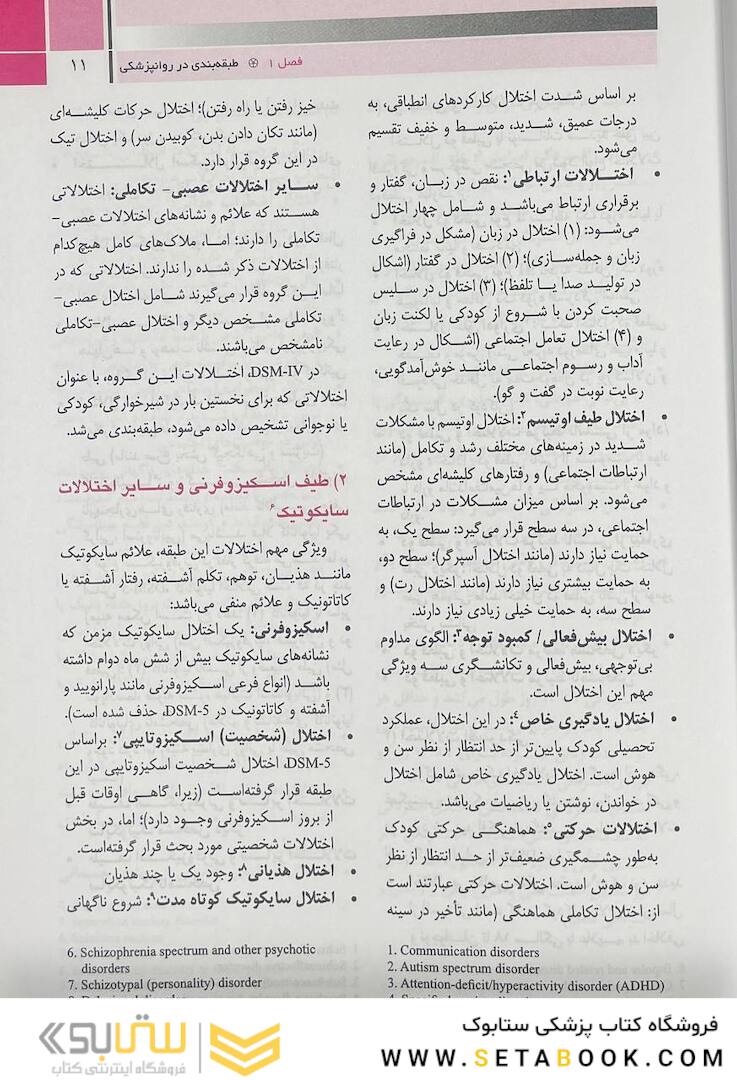 فصل ۱ طبقه‌بندی در روانپزشکی ۱۱
بر اساس شدت اختلال کارکردهای انطباقی، به
درجات عمیق، شدید، متوسط و خفیف تقسیم
می‌شود.
• اختلالات ارتباطی۱: نقص در زبان، گفتار و
برقراری ارتباط می‌باشد و شامل چهار اختلال
می‌شود: (۱) اختلال در زبان (مشکل در فراگیری
زبان و جمله‌سازی)؛ (۲) اختلال در گفتار (اشکال
در تولید صدا یا تلفظ)؛ (۳) اختلال در سلیس
صحبت کردن با شروع از کودکی یا لکنت زبان
و (۴) اختلال تعامل اجتماعی (اشکال در رعایت
آداب و رسوم اجتماعی مانند خوش‌آمدگویی،
رعایت نوبت در گفت و گو).
• اختلال طیف اوتیسم۲: اختلال اوتیسم با مشکلات
شدید در زمینه‌های مختلف رشد و تکامل (مانند
ارتباطات اجتماعی) و رفتارهای کلیشه‌ای مشخص
می‌شود. بر اساس میزان مشکلات در ارتباطات
اجتماعی، در سه سطح قرار می‌گیرد: سطح یک، به
حمایت نیاز دارند (مانند اختلال آسپرگر)؛ سطح دو،
به حمایت بیشتری نیاز دارند (مانند اختلال رت) و
سطح سه، به حمایت خیلی زیادی نیاز دارند.
• اختلال بیش‌فعالی/ کمبود توجه۳: الگوی مداوم
بی‌توجهی، بیش‌فعالی و تکانشگری سه ویژگی
مهم این اختلال است.
• اختلال یادگیری خاص۴: در این اختلال، عملکرد
تحصیلی کودک پایین‌تر از حد انتظار از نظر سن و
هوش است. اختلال یادگیری خاص شامل اختلال
در خواندن، نوشتن یا ریاضیات می‌باشد.
• اختلالات حرکتی۵: هماهنگی حرکتی کودک
به‌طور چشمگیری ضعیف‌تر از حد انتظار از نظر
سن و هوش است. اختلالات حرکتی عبارتند است
از: اختلال تکاملی هماهنگی (مانند تأخیر در سینه
1. Communication disorders
2. Autism spectrum disorder
3. Attention-deficit/hyperactivity disorder (ADHD)
خیز رفتن یا راه رفتن)؛ اختلال حرکات کلیشه‌ای
(مانند تکان دادن بدن، کوبیدن سر) و اختلال تیک
در این گروه قرار دارد.
• سایر اختلالات عصبی- تکاملی: اختلالاتی
هستند که علائم و نشانه‌های اختلالات عصبی-
تکاملی را دارند؛ اما، ملاک‌های کامل هیچ‌کدام
از اختلالات ذکر شده را ندارند. اختلالاتی که در
این گروه قرار می‌گیرند شامل اختلال عصبی-
تکاملی مشخص دیگر و اختلال عصبی-تکاملی
نامشخص می‌باشند.
در DSM-IV، اختلالات این گروه، با عنوان
اختلالاتی که برای نخستین بار در شیرخوارگی، کودکی
یا نوجوانی تشخیص داده می‌شود، طبقه‌بندی می‌شد.
۲) طیف اسکیزوفرنی و سایر اختلالات
سایکوتیک۶
ویژگی مهم اختلالات این طبقه، علائم سایکوتیک
مانند هذیان، توهم، تکلم آشفته، رفتار آشفته یا
کاتاتونیک و علائم منفی می‌باشد:
• اسکیزوفرنی: یک اختلال سایکوتیک مزمن که
نشانه‌های سایکوتیک بیش از شش ماه دوام داشته
باشد (انواع فرعی اسکیزوفرنی مانند پارانویید و
آشفته و کاتاتونیک در DSM-5، حذف شده است).
• اختلال (شخصیت) اسکیزوتایپی۷: براساس
DSM-5، اختلال شخصیت اسکیزوتایپی در این
طبقه قرار گرفته‌است (زیرا، گاهی اوقات قبل
از بروز اسکیزوفرنی وجود دارد)؛ اما، در بخش
اختلالات شخصیتی مورد بحث قرار گرفته‌است.
• اختلال هذیانی۸: وجود یک یا چند هذیان
• اختلال سایکوتیک کوتاه مدت۹: شروع ناگهانی
6. Schizophrenia spectrum and other psychotic
disorders
7. Schizotypal (personality) disorder
فروشگاه کتاب پزشکی ستابوک
WWW.SETABOOK.COM
ستابوک
فروشگاه اینترنتی کتاب